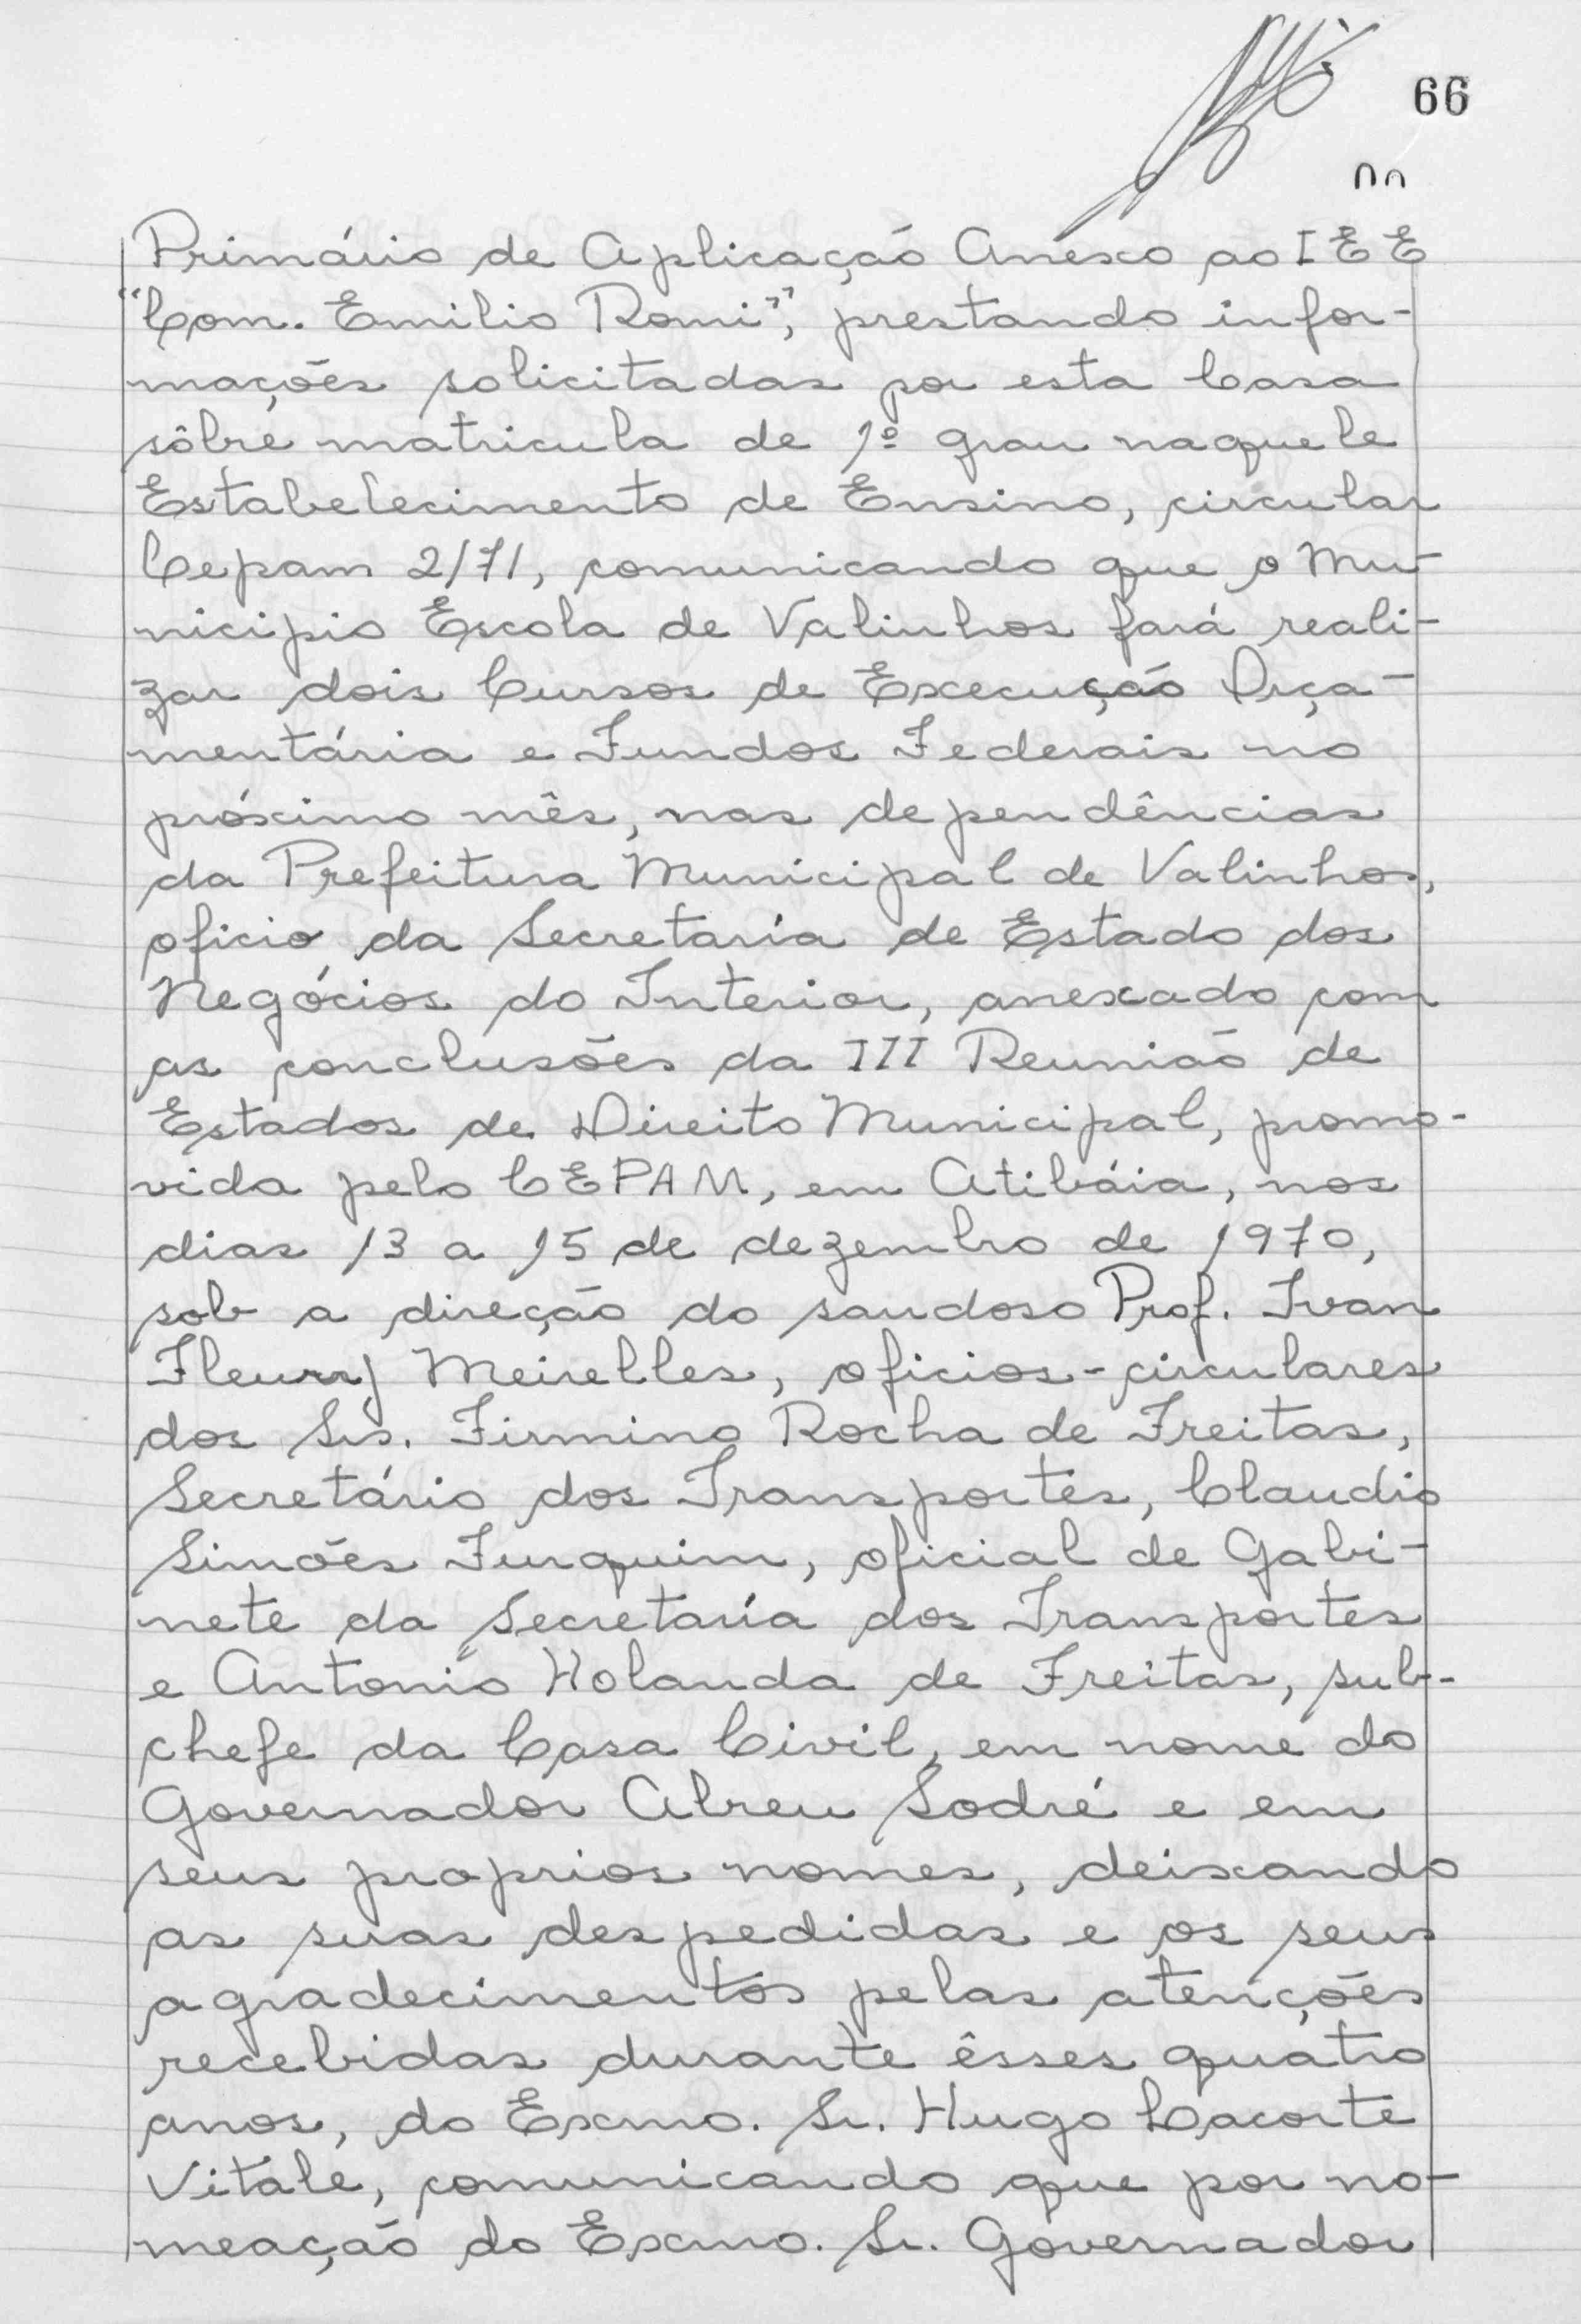 66
Primário de Aplicação Anexo ao I E E
"Com. Emilio Romi", prestando infor-
mações solicitadas por esta Casa
sôbre matricula de 1º grau naquele
Estabelecimento de Ensino, circular
Cepam 2/71, comunicando que o Mu-
nicipio Escola de Valinhos fará reali-
zar dois Cursos de Execução Orça-
mentária e Fundos Federais no
próximo mês, nas dependências
da Prefeitura Municipal de Valinhos,
oficio da Secretaria de Estado dos
Negócios do Interior, anexado com
as conclusões da III Reunião de
Estados de Direito Municipal, promo-
vida pelo CEPAM, em Atibáia, nos
dias 13 a 15 de dezembro de 1970,
sob a direção do saudoso Prof. Ivan
Fleury Meirelles, oficios-circulares
dos Srs. Firmino Rocha de Freitas,
Secretário dos Transportes, Claudio
Simões Furquim, oficial de Gabi-
nete da Secretaria dos Transportes
e Antonio Holanda de Freitas, sub-
chefe da Casa Civil, em nome do
Governador Abreu Sodré e em
seus proprios nomes, deixando
as suas despedidas e os seus
agradecimentos pelas atenções
recebidas durante êsses quatro
anos, do Exmo. Sr. Hugo Lacorte
Vitale, comunicando que por no-
meação do Exmo. Sr. Governador